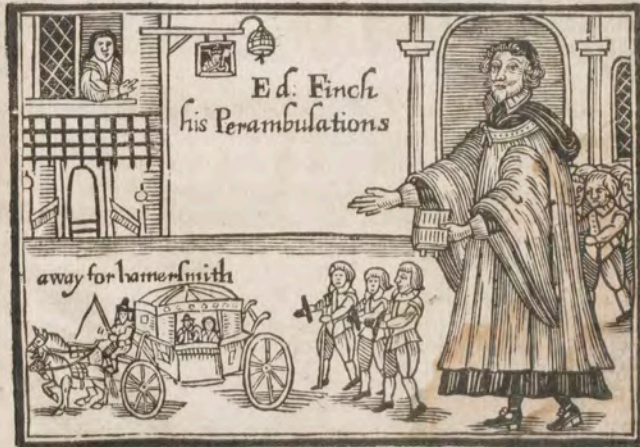 Ed: Finch
his Perambulations
away for hamersmith